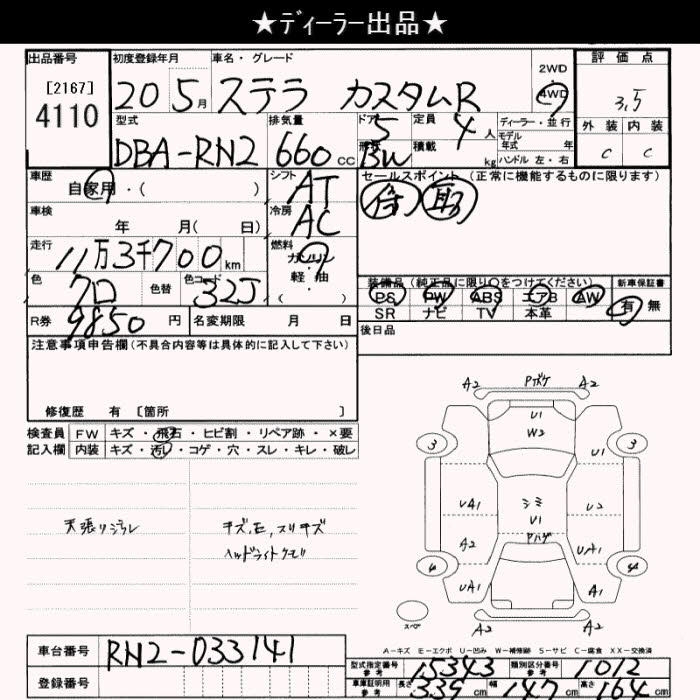 ★ディーラー出品★
出品番号
[2167]
4110
初度登録年月
20 5月
車名・グレード
ステラ カスタムR
2WD
4WD
評価点
3.5
外装 内装
C C
型式
DBA-RN2
排気量
660cc
ドア 5
形状 BW
定員 4人
積載 kg
ディーラー・並行
モデル年式 年
ハンドル 左・右
車歴
自家用・( )
シフト
AT
セールスポイント(正常に機能するものに限ります)
車検
年 月( 日)
冷房
AC
走行
11万3千700km
燃料
ガソリン
軽・油
( )
色
クロ
色替
色コード
32J
装備品(純正品に限り○をつけてください)
PS PW ABS エアB AW
SR ナビ TV 本革
新車保証書
有 無
R券 9850円
名変期限 月 日
後日品
注意事項申告欄(不具合内容等は具体的に記入して下さい)
修復歴 有 [箇所 ]
検査員 FW キズ・飛石・ヒビ割・リペア跡・×要
記入欄 内装 キズ・汚レ・コゲ・穴・スレ・キレ・破レ
天張リジワレ
キズ,E,スリキズ
ヘッドライトクモリ
A2 A2
U1
W2
3 3
UA1 シミ U2
U1
A2 UA1
4 4
UA1 A1
スペア
A2 A2
A-キズ E-エクボ U-凹み W-補修跡 S-サビ C-腐食 XX-交換済
車台番号 RN2-033141
登録番号
型式指定番号 参考 15343
類別区分番号 参考 1012
車庫証明用 参考 長さ 339cm 幅 147cm 高さ 164cm